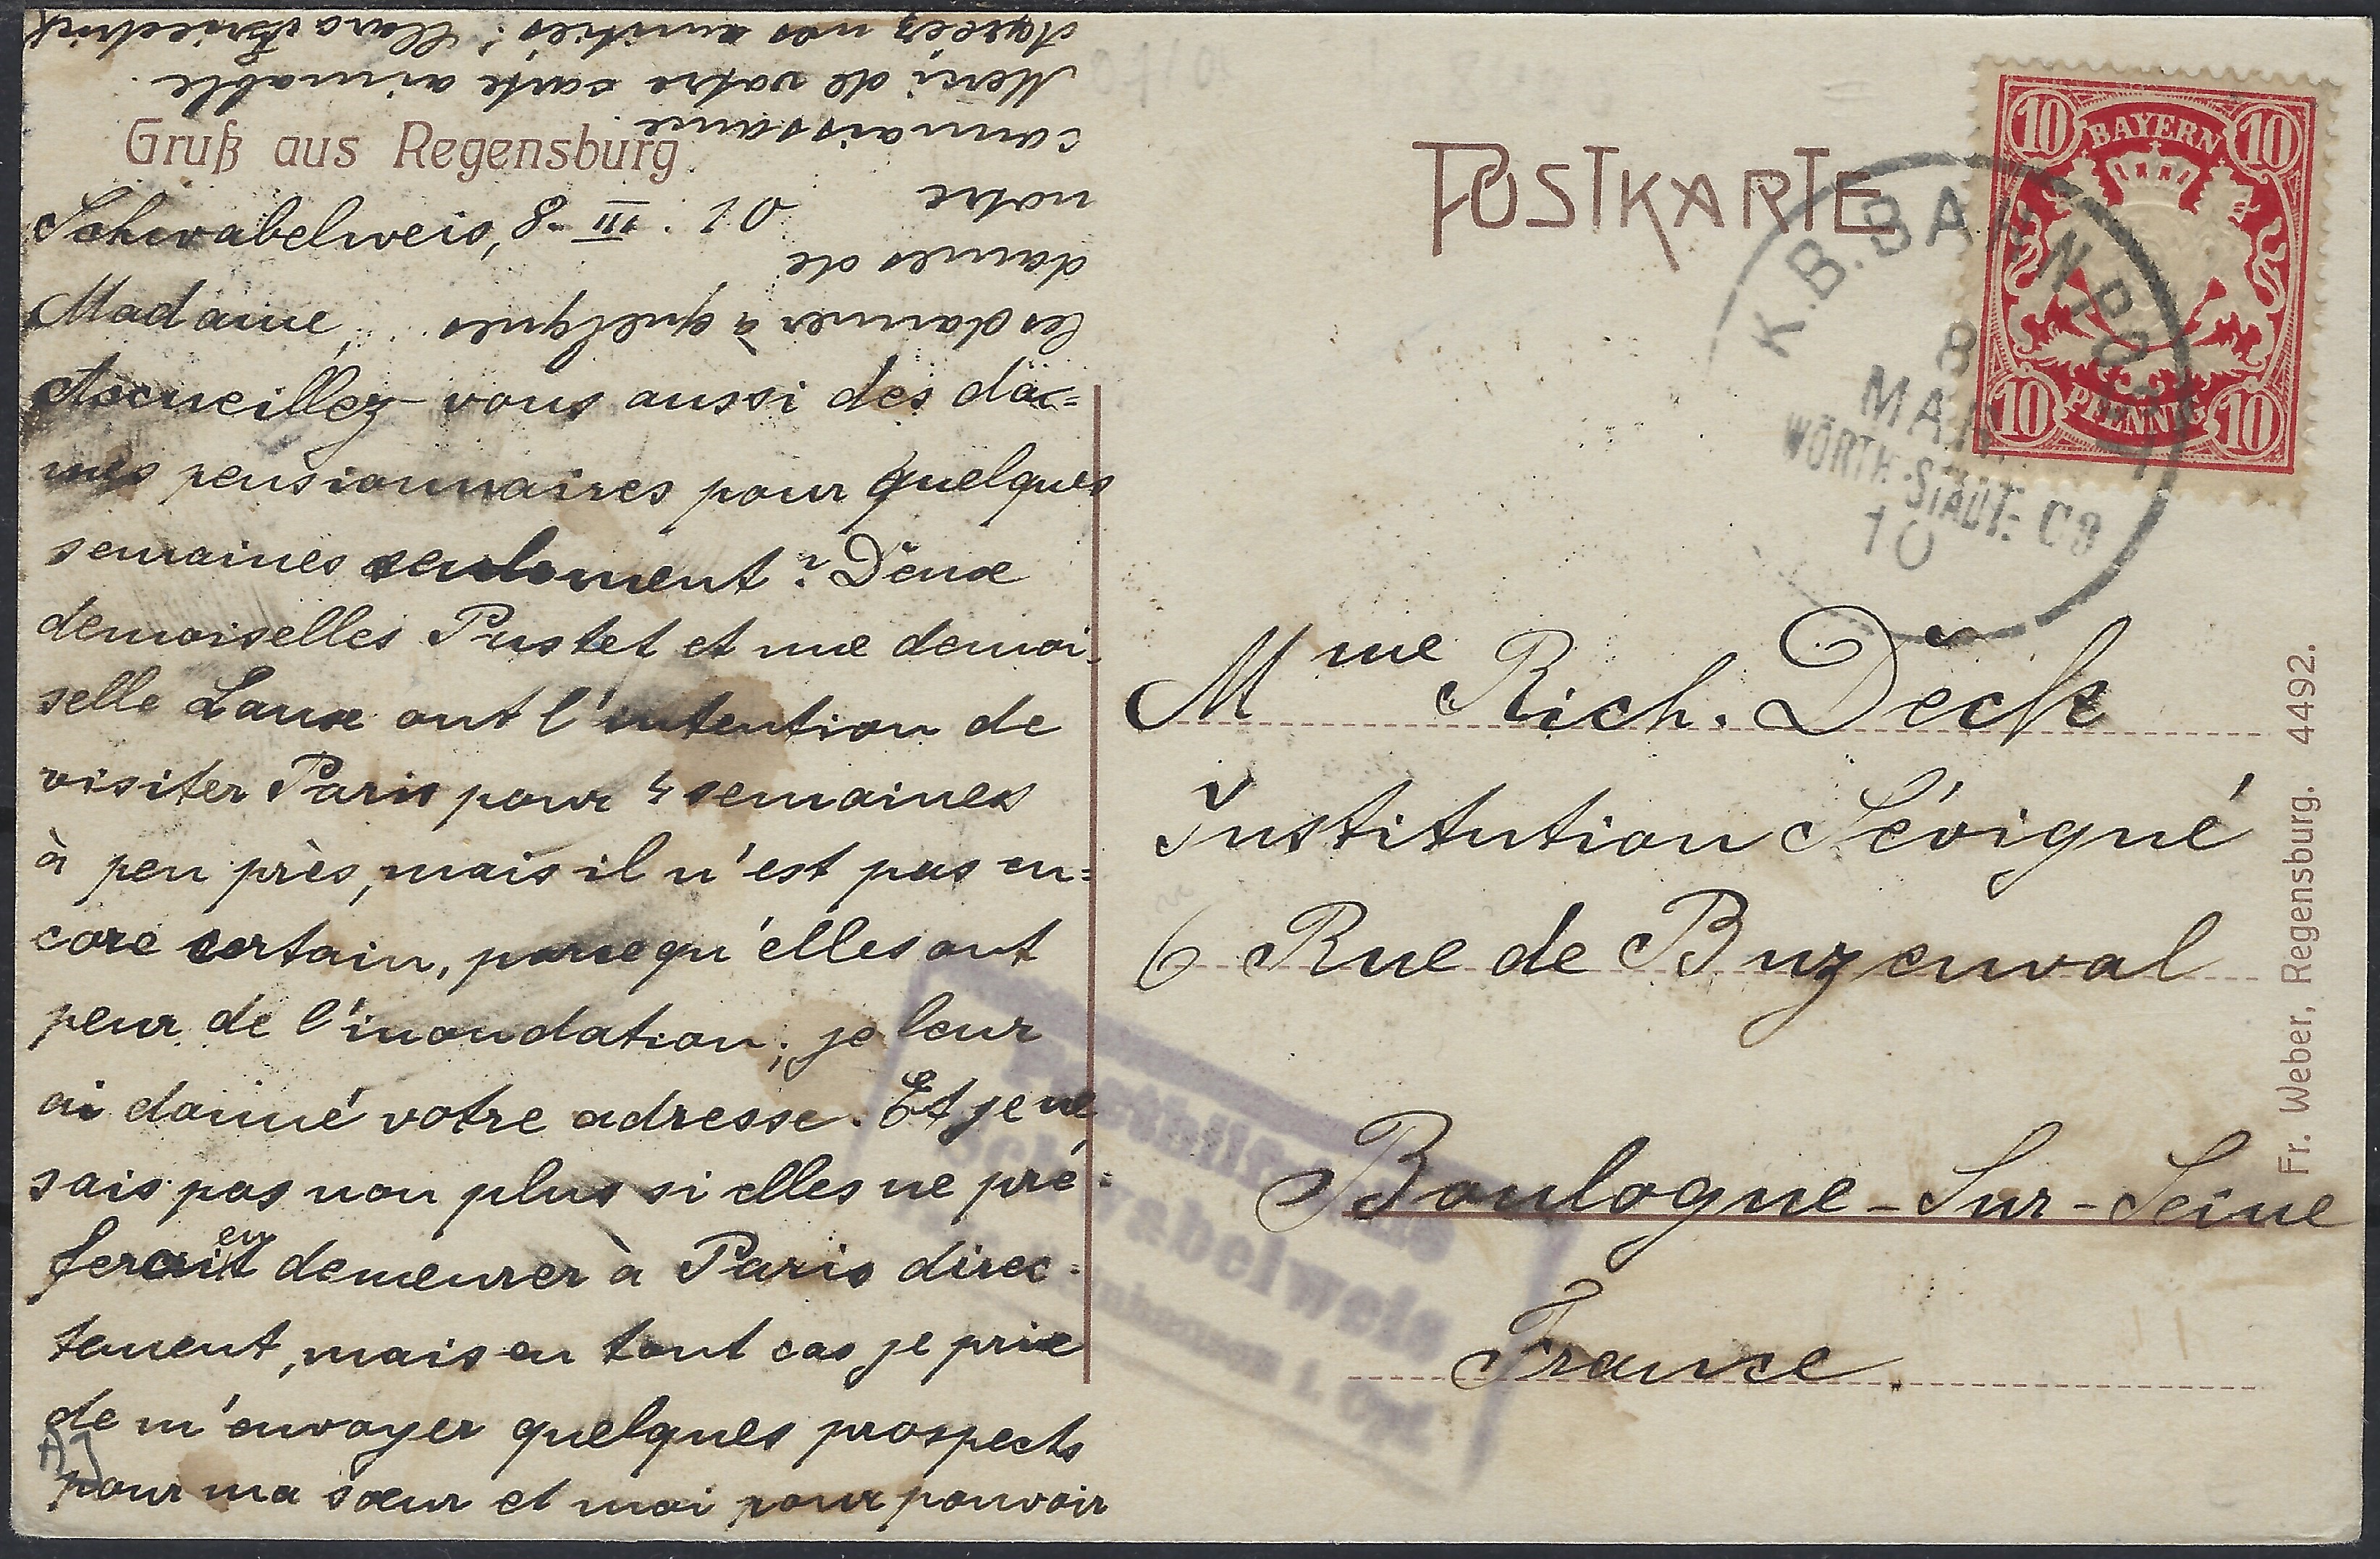 Gruß aus Regensburg.
Schwabelweis, 8. III. 10
Madame,
Accueillez-vous aussi des da=
mes pensionnaires pour quelques
semaines seulement? Deux
demoiselles Pustet et une demoi-
selle Laux ont l'intention de
visiter Paris pour 4 semaines
à peu près, mais il n'est pas en=
core certain, parcequ'elles ont
peur de l'inondation; je leur
ai donné votre adresse. Et je ne
sais pas non plus si elles ne pré=
feraient demeurer à Paris direc-
tement, mais en tout cas je prie
de m'envoyer quelques prospects
pour ma sœur et moi pour pouvoir
les donner à quelques
dames de
notre
connaissance.
Merci de votre carte aimable.
Agréez nos amitiés! Clara Friedrich
POSTKARTE
10 BAYERN 10
10 PFENNIG 10
K.B. BAHNPOST
8
MAR
WÖRTH-STADT.
10
Mme Rich. Deck
Institution Sévigné
6 Rue de Buzenval
Boulogne-Sur-Seine
France.
Posthilfstelle
Schwabelweis
Fr. Weber, Regensburg. 4492.
AJ